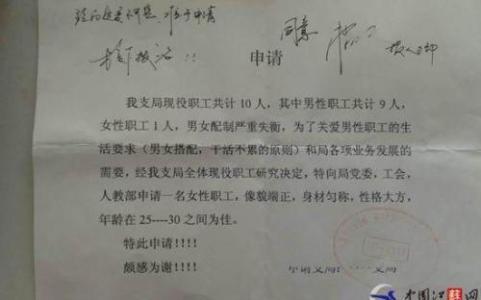 同意
申请
我支局现役职工共计 10 人，其中男性职工共计 9 人，
女性职工 1 人，男女配制严重失衡，为了关爱男性职工的生
活要求（男女搭配，干活不累的原则）和局各项业务发展的
需要，经我支局全体现役职工研究决定，特向局党委，工会，
人教部申请一名女性职工，像貌端正，身材匀称，性格大方，
年龄在 25----30 之间为佳。
特此申请!!!!
颇感为谢!!!!
中国江苏网